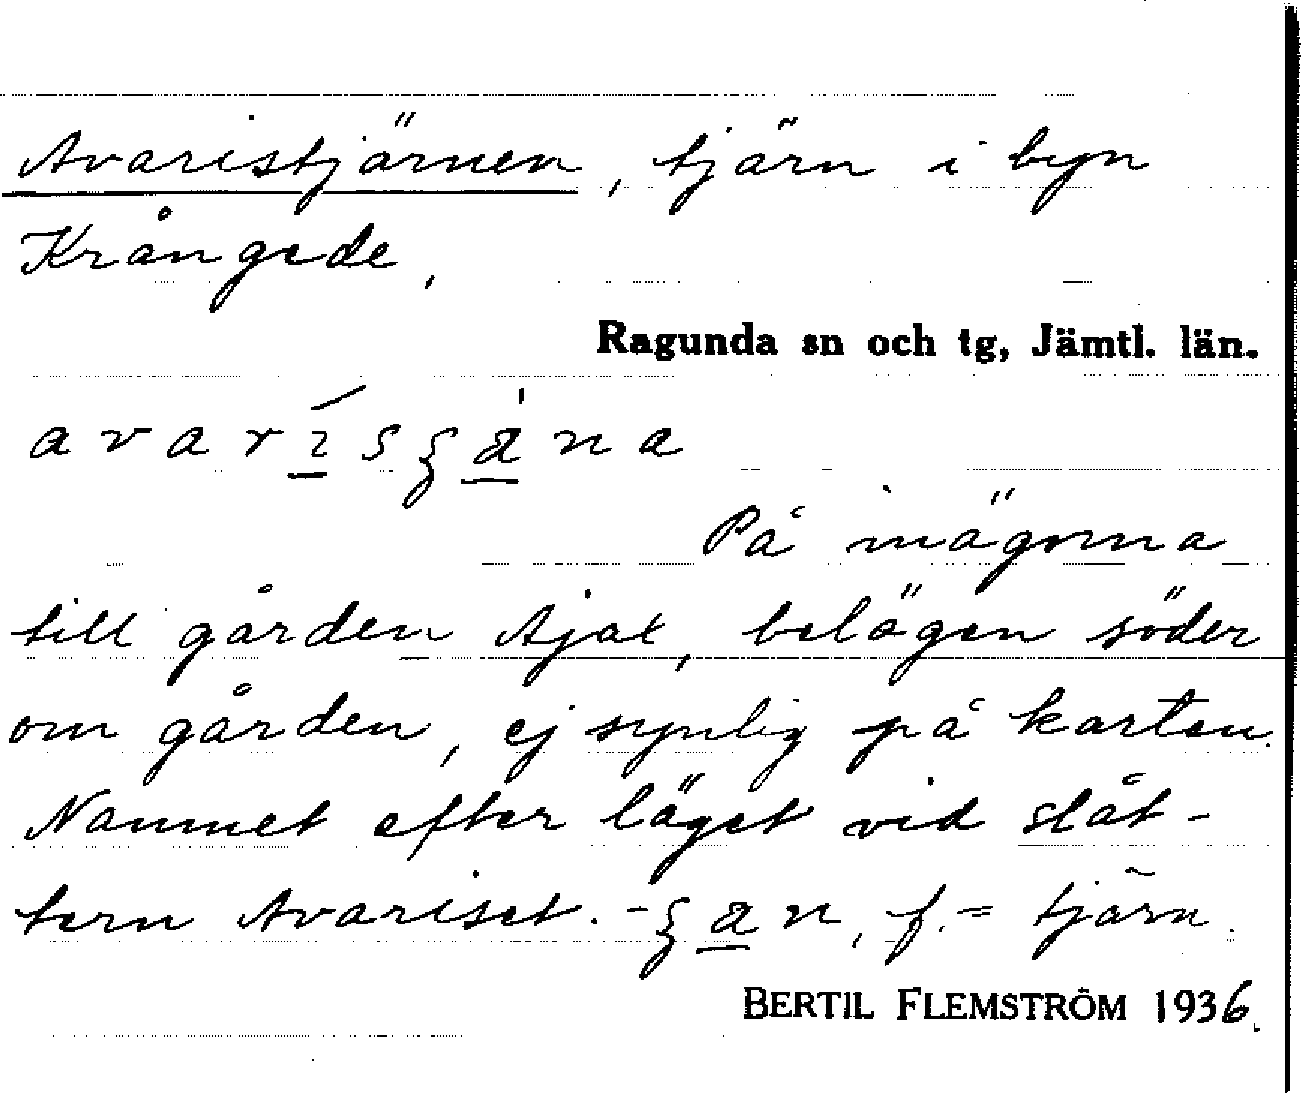 Avaristjärnen, tjärn i byn
Krångede,
Ragunda sn och tg, Jämtl. län.
På inägorna
till gården Ajax, belägen söder
om gården, ej synlig på kartan.
Namnet efter läget vid slåt-
tern Avariset. - ʒan, f. = tjärn.
BERTIL FLEMSTRÖM 1936.